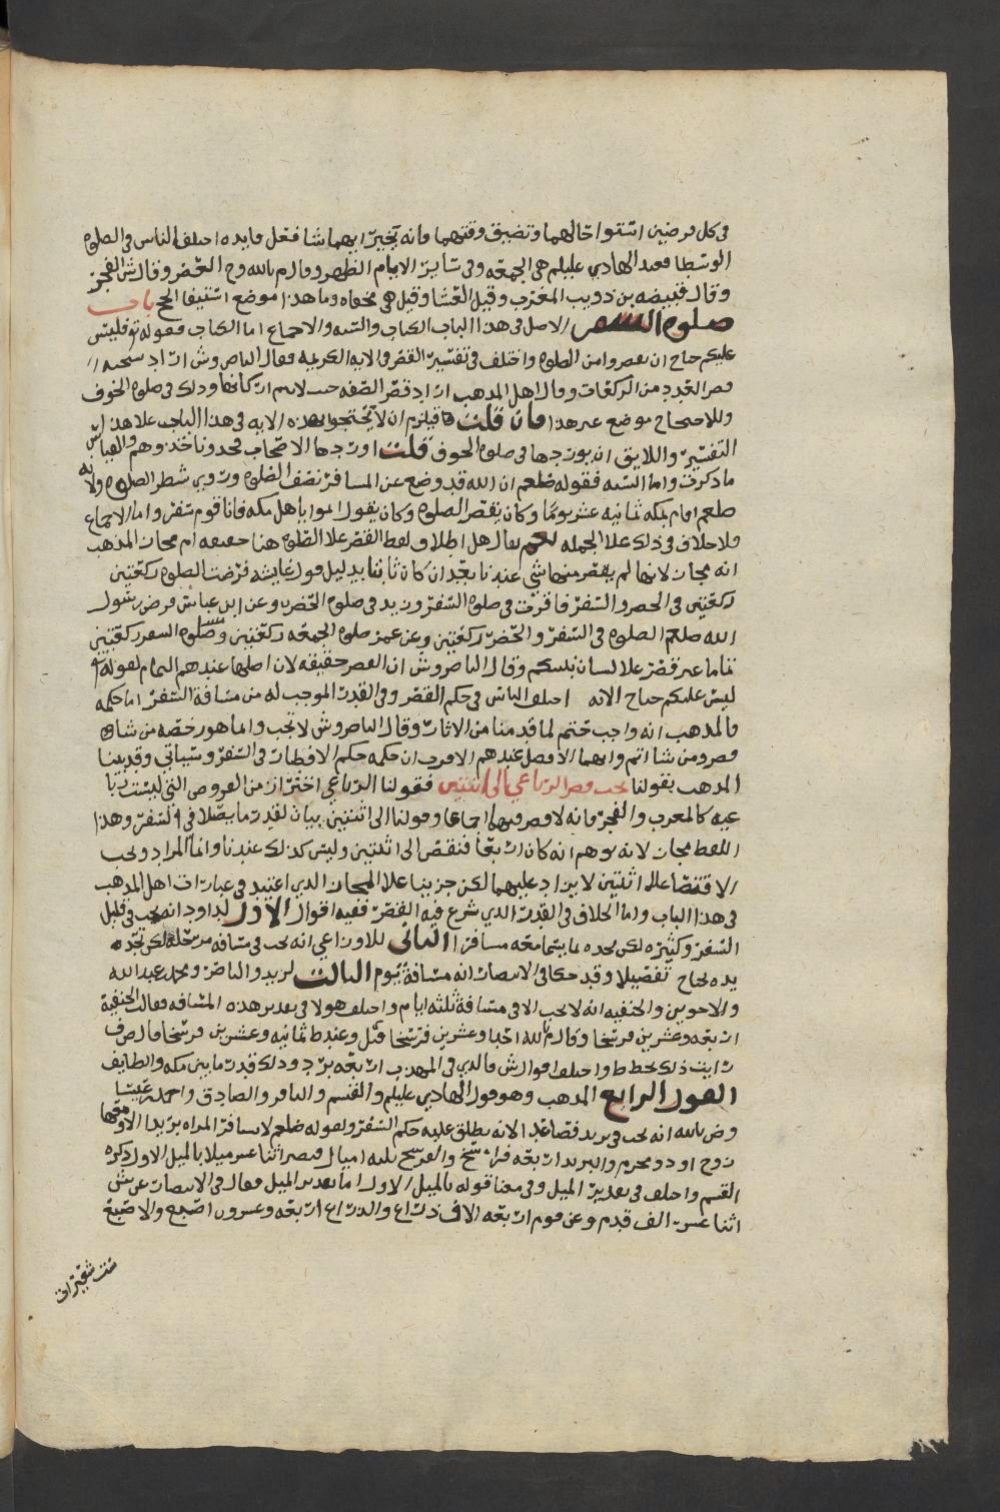 في كل فرضين استوا حالهما وتضيق وقتهما فانه يخير ايهما شا فعل فايده اختلف الناس في الصلوه
الوسطا فعند الهادي عليلم هي الجمعه وفي سائر الايام الظهر وقال م بالله وح العصر وقال ش الفجر
وقال قبيصه بن ذويب المغرب وقيل العشا وقيل هي مخفاه وما هذا موضع استيفا الحجج باب
صلوه السفر الاصل في هذا الباب الكتاب والسنه والاجماع اما الكتاب فقوله تع فليس
عليكم جناح ان تقصروا من الصلوه واختلف في تفسير القصر في الايه الكريمه فقال الناصر وش اراد سبحنه
قصر العدد من الركعات وقال اهل المذهب اراد قصر الصفه حيث لا يتم اركانها وذلك في صلوه الخوف
وللاحتجاج موضع غير هذا فان قلت فيلزم ان لا يحتجوا بهذه الايه في هذا الباب علا هذا
التفسير واللايق انه يوردها في صلوه الخوف قلت اوردها الاصحاب فحدونا حذوهم والقياس
ما ذكرت واما السنه فقوله صلعم ان الله قد وضع عن المسافر نصف الصلوه وروي شطر الصلوه ولانه
صلعم اقام بمكه ثمانيه عشر يوما وكان يقصر الصلوه وكان يقول اتموا يا اهل مكه فانا قوم سفر واما الاجماع
فلا خلاف في ذلك علا الجمله نعم يقال هل اطلاق لفظ القصر علا الصلوه هنا حقيقه ام مجاز المذهب
انه مجاز لانها لم يقصر منها شي عندنا بعد ان كان ثابتا بدليل قول عايشه فرضت الصلوه ركعتين
ركعتين في الحضر والسفر فاقرت في صلوه السفر وزيد في صلوه الحضر وعن ابن عباس فرض رسول
الله صلعم الصلوه في السفر والحضر ركعتين وعن عمر صلوه الجمعه ركعتين وصلوه السفر ركعتين
تماما غير قصر علا لسان نبيكم وقال الناصر وش ان القصر حقيقه لان اصلها عندهم التمام لقوله تع
ليس عليكم جناح الايه اختلف الناس في حكم القصر وفي القدر الموجب له من مسافه السفر اما حكمه
فالمذهب انه واجب حتم لما قدمنا من الاثار وقال الناصر وش لا يجب وانما هو رخصه من شا
قصر ومن شا اتم وايهما الافضل عندهم الاقرب ان حكمه حكم الافطار في السفر وسياتي وقد بينا
المذهب بقولنا يجب قصر الرباعي الى اثنتين فقولنا الرباعي احتراز من الفروض التي ليست ربا
عيه كالمغرب والفجر فانه لا قصر فيهما اجماعا وقولنا الى اثنتين بيان لقدر ما يصلا في السفر وهذا
اللفظ مجاز لانه يوهم انه كان اربعا فنقص الى اثنتين وليس كذلك عندنا وانما المراد وجب
الاقتصا على اثنتين لا يزاد عليهما لكن جرينا علا المجاز الذي اعتيد في عبارات اهل المذهب
في هذا الباب واما الخلاف في القدر الذي شرع فيه القصر ففيه اقوال الاول لداود انه يجب في قليل
السفر وكثيره لكن بحده بما يسما معه مسافرا الثاني للاوزاعي انه يجب في مسافه مرحله لكن تحد
يده يحتاج تفصيلا وقد حكا في الانتصار انه مسافه يوم الثالث لزيد والناصر ومحمد بن عبدالله
والاخوين والحنفيه انه لا يجب الا في مسافه ثلثه ايام واختلف هولا في تقدير هذه المسافه فقالت الحنفيه
اربعه وعشرين فرسخا وقال م بالله احدا وعشرين فرسخا قيل وعند ط ثمانيه وعشرين فرسخا قال ص ف
رايت ذلك بخط ط واختلف اقوال ش فالذي في المهذب اربعه برد وذلك قدر ما بين مكه والطايف
القول الرابع المذهب وهو قول الهادي عليلم والقسم والباقر والصادق واحمد بن عيسا
وض بالله انه يجب في بريد فصاعدا لانه يطلق عليه حكم السفر ولقوله صلعم لا تسافر المراه بريدا الا ومعها
زوج او ذو محرم والبريد اربعه فراسخ والفرسخ ثلثه اميال فيصير اثنا عشر ميلا بالميل الاول ذكره
القسم واختلف في تقدير الميل وفي معنا قوله بالميل الاول اما تقدير الميل فقال في الانتصار عن ش
اثنا عشر الف قدم وعن قوم اربعه الاف ذراع والذراع اربعه وعشرون اصبع والاصبع
ست شعيرات